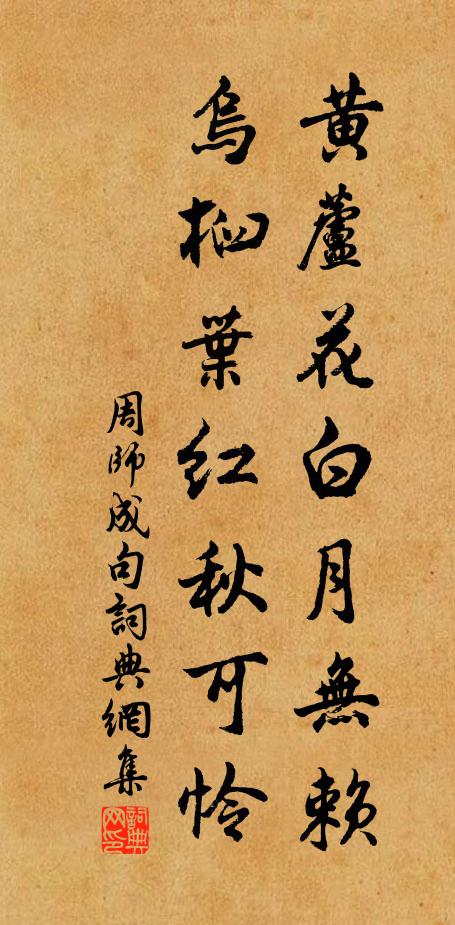 黃蘆花白月無賴
烏桕葉紅秋可怜
周師成句詞典網集
詞典網印